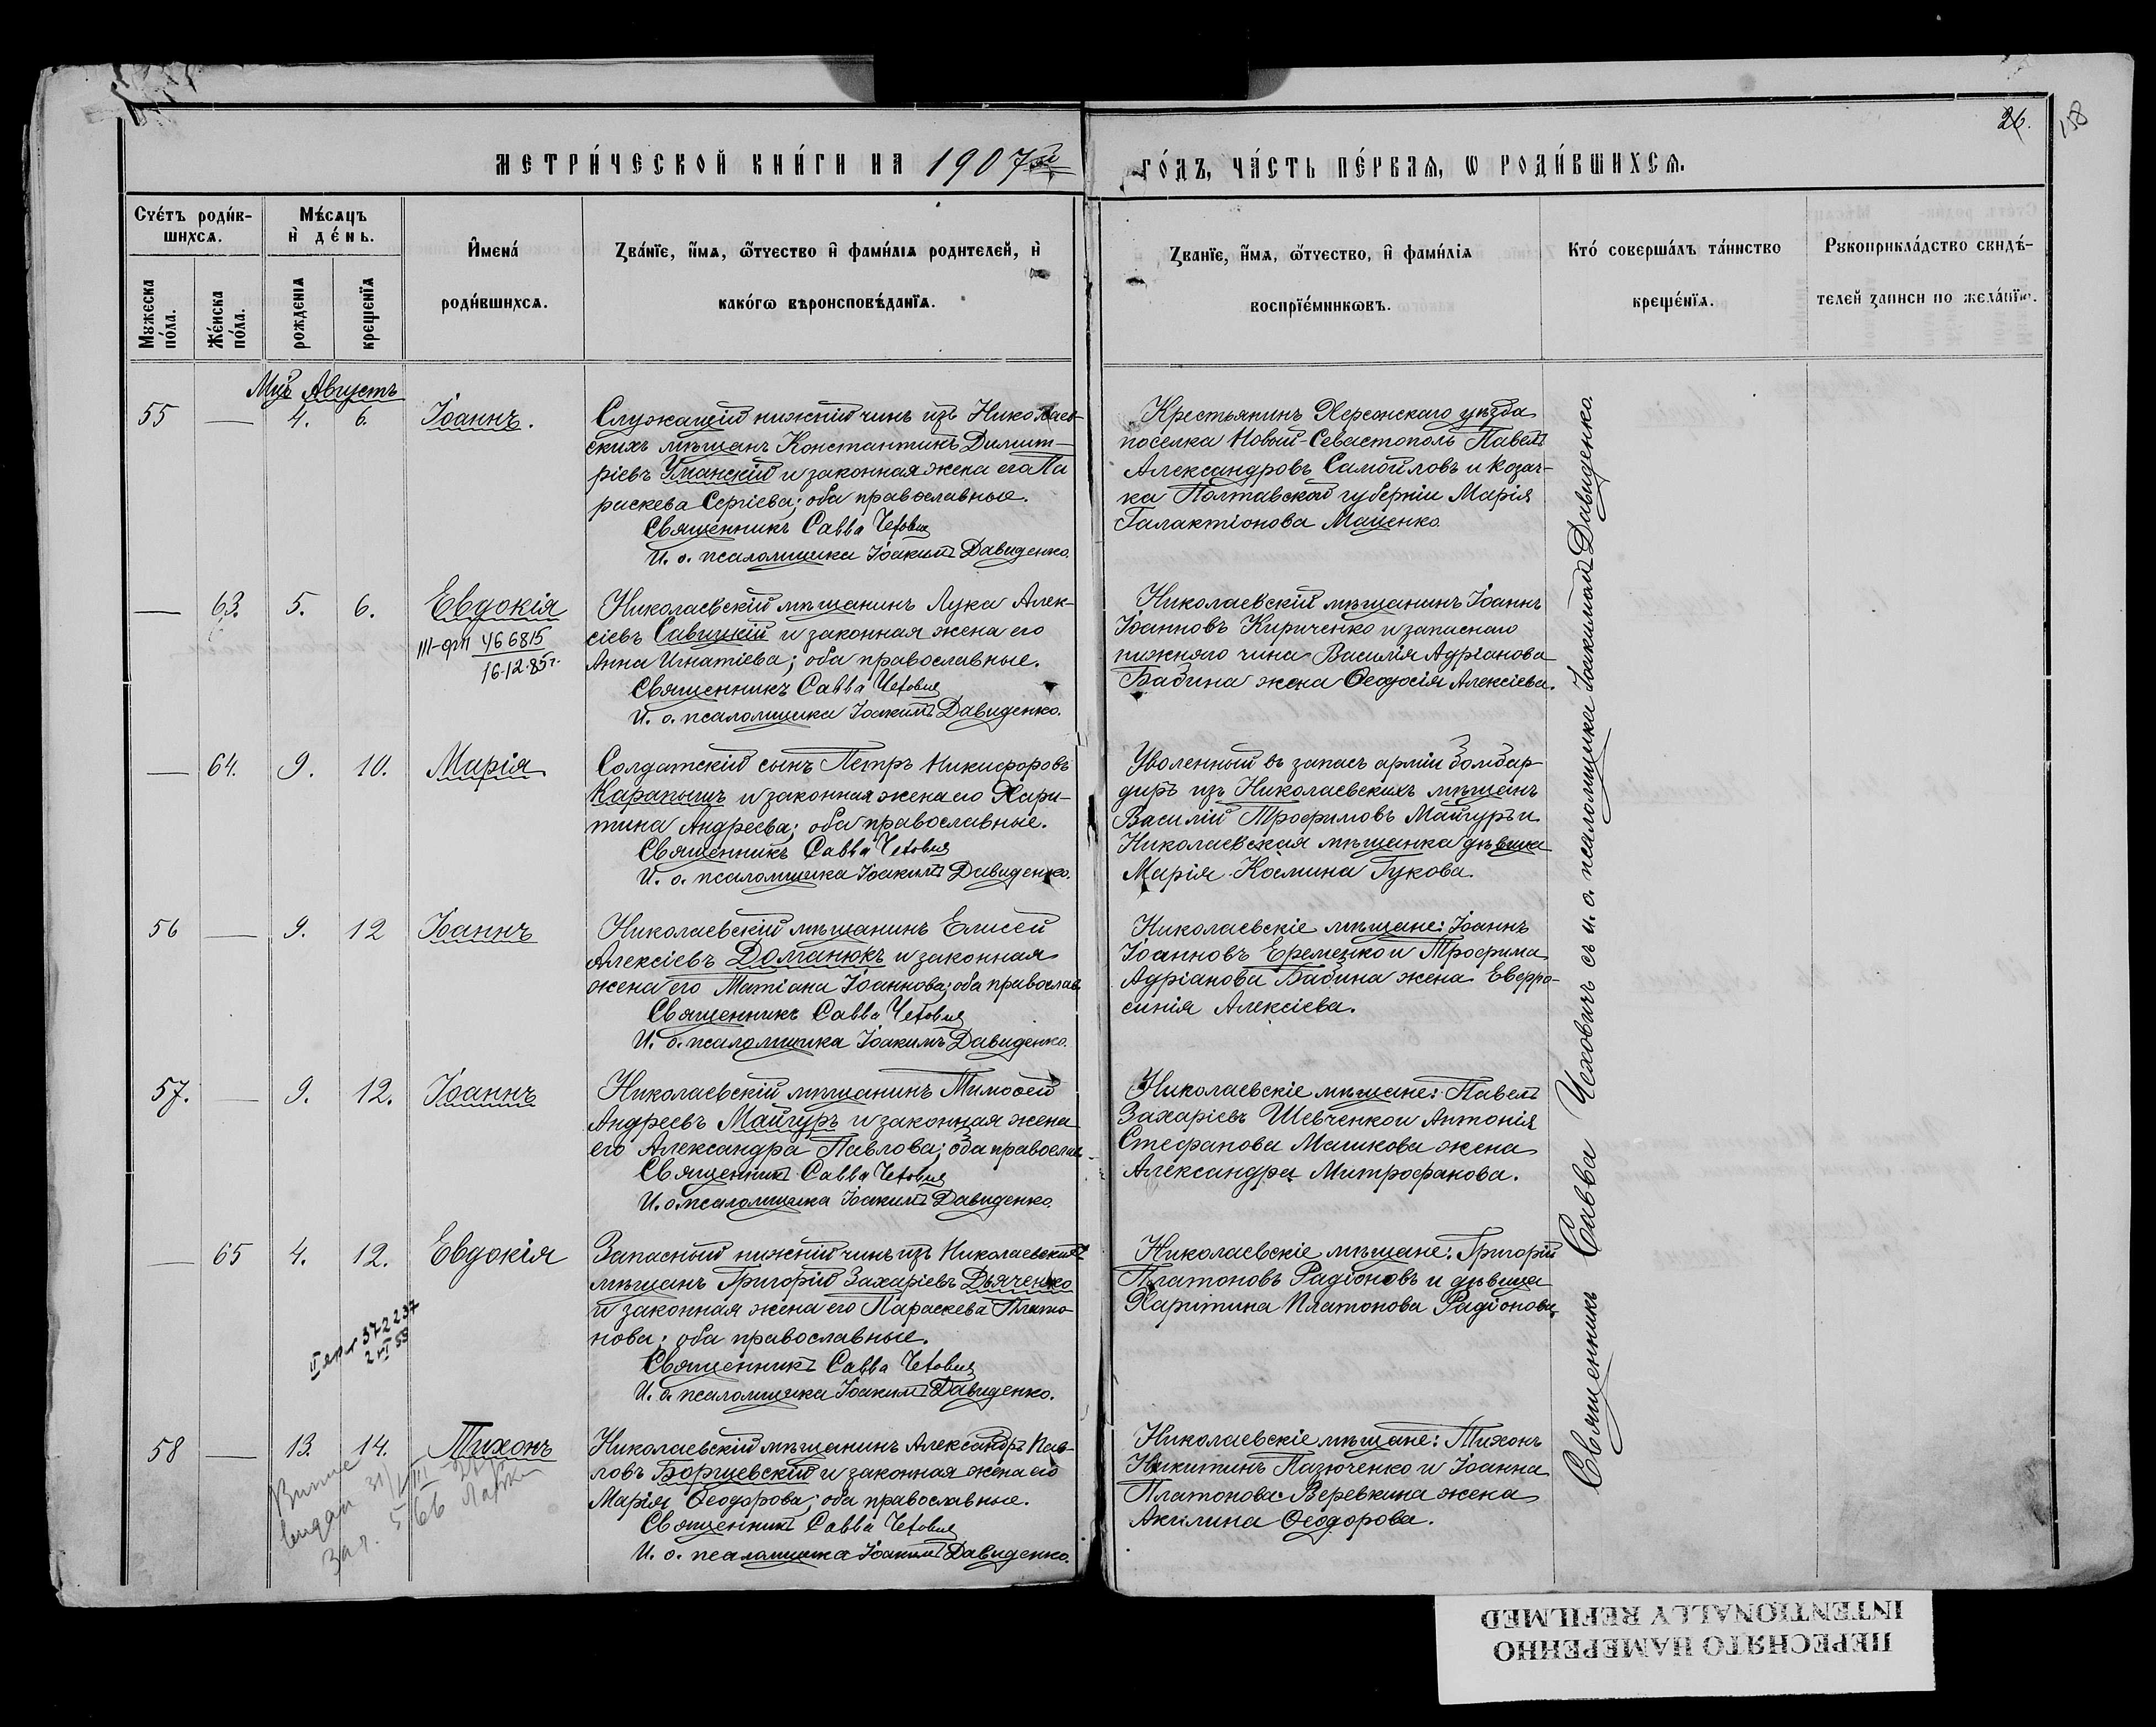 26.
158
МЕТРИ́ЧЕСКОЙ КНИ́ГИ НА 1907й
ГО́ДЪ, ЧА́СТЬ ПЕ́РВАѦ, Ѡ РОДИ́ВШИХСѦ.
Сче́тъ роди́в-
шихсѧ.
Мꙋжеска по́ла.
Же́нска по́ла.
Мѣ́сѧцъ
и҆ де́нь.
рожденїѧ
крещенїѧ
И҆мена́
роди́вшихсѧ.
Ꙁва́нїе, и҆́мѧ, ѻ҆́тчество и҆ фами́лїѧ родителей, и҆
како́гѡ вѣроисповѣ́данїѧ.
Ꙁванїе, и҆́мѧ, ѻ҆́тчество, и҆ фами́лїѧ
воспрїе́мникѡвъ.
Кто́ соверша́лъ та́инство
креще́нїѧ.
Рꙋкоприкла́дство свидѣ́-
телей ꙁаписи по жела́нїю.
Мцъ Августъ
55 — 4. 6. Іоаннъ.
Служащій нижній чинъ изъ Николаев-
скихъ мѣщанъ Константинъ Димит-
ріевъ Уманскій и законная жена его Па
раскева Сергіева; оба православные.
Священникъ Савва Чехович
И. о. псаломщика Іоакимъ Давиденко.
Крестьянинъ Херсонскаго уѣзда
поселка Новый-Севастополь Павелъ
Александровъ Самойловъ и козач-
ка Полтавской губерніи Марія
Галактіонова Маценко.
— 63. 5. 6. Евдокія
III-фп 466815
16.12.85г.
Николаевскій мѣщанинъ Лука Алек-
сіевъ Савицкій и законная жена его
Анна Игнатіева; оба православные.
Священникъ Савва Чехович
И. о. псаломщика Іоакимъ Давиденко.
Николаевскій мѣщанинъ Іоаннъ
Іоанновъ Кириченко и запаснаго
нижняго чина Василія Адріанова
Бабина жена Ѳеодосія Алексіева.
— 64. 9. 10. Марія
Солдатскій сынъ Петръ Никифоровъ
Карапышъ и законная жена его Хари-
тина Андреева; оба православные.
Священникъ Савва Чехович
И. о. псаломщика Іоакимъ Давиденко.
Уволенный въ запасъ арміи бомбар-
диръ изъ Николаевскихъ мѣщанъ
Василій Трофимовъ Майгуръ и
Николаевская мѣщанка дѣвица
Марія Космина Гукова.
56 — 9. 12 Іоаннъ
Николаевскій мѣщанинъ Елисей
Алексіевъ Доманюкъ и законная
жена его Матіана Іоаннова; оба православ.
Священникъ Савва Чехович
И. о. псаломщика Іоакимъ Давиденко.
Николаевскіе мѣщане: Іоаннъ
Іоанновъ Еременко и Трофима
Адріанова Бабина жена Евфро-
синія Алексіева.
57. — 9. 12. Іоаннъ
Николаевскій мѣщанинъ Тимоѳей
Андреевъ Майгуръ и законная жена
его Александра Павлова; оба православ
Священникъ Савва Чехович
И. о. псаломщика Іоакимъ Давиденко.
Николаевскіе мѣщане: Павелъ
Захаріевъ Шевченко и Антонія
Стефанова Машкова жена
Александра Митрофанова.
— 65 4. 12. Евдокія
372237
2 VI 53
Запасный нижній чинъ изъ Николаевскихъ
мѣщанъ Григорій Захаріевъ Дьяченко
и законная жена его Параскева Плато-
нова; оба православные.
Священникъ Савва Чехович
И. о. псаломщика Іоакимъ Давиденко.
Николаевскіе мѣщане: Григорій
Платоновъ Радіоновъ и дѣвица
Харитина Платонова Радіонова.
58 — 13. 14. Тихонъ
видан 31/VIII
566
Николаевскій мѣщанинъ Александръ Пав-
ловъ Борщевскій и законная жена его
Марія Ѳеодорова; оба православные.
Священникъ Савва Чехович
И. о. псаломщика Іоакимъ Давиденко.
Николаевскіе мѣщане: Тихонъ
Никитинъ Пазюченко и Іоанна
Платонова Веревкина жена
Акилина Ѳеодорова.
Священникъ Савва Чеховичъ съ и. о. псаломщика Іоакимомъ Давиденко.
ПЕРЕСНЯТО НАМЕРЕННО
INTENTIONALLY REFILMED